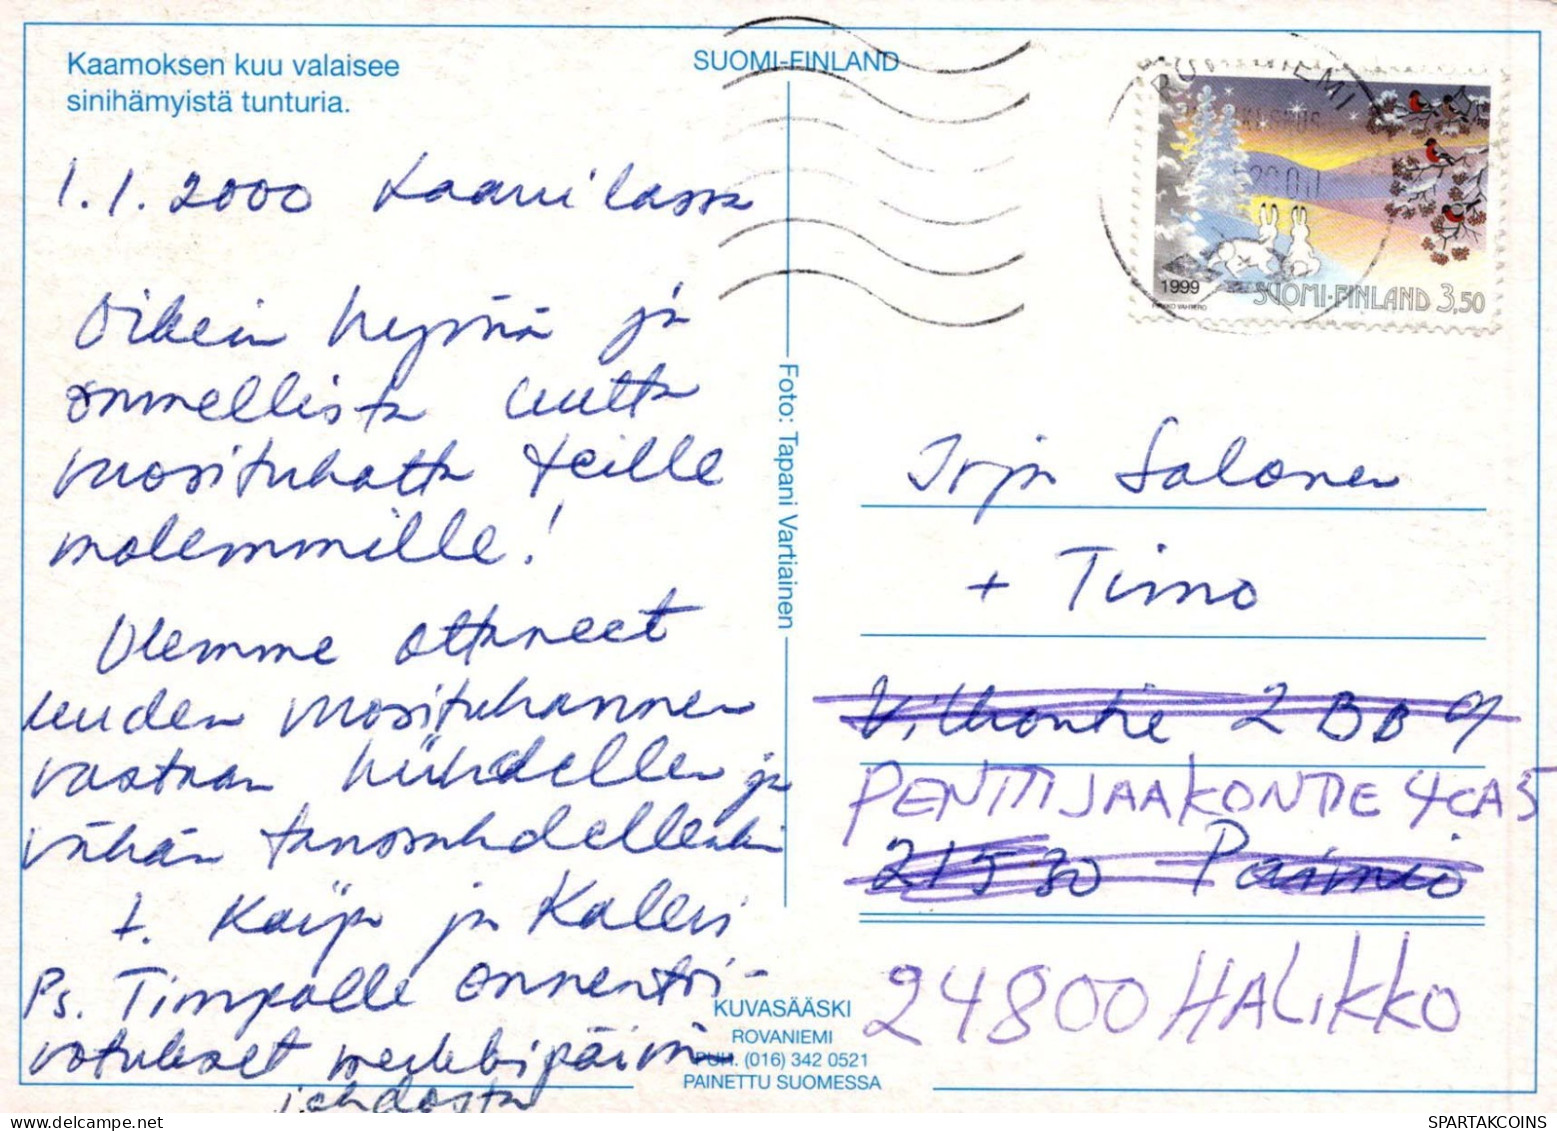 Kaamoksen kuu valaisee
sinihämyistä tunturia.
SUOMI-FINLAND
1.1.2000 Laanilassa
Oikein hyvää ja
onnellista uutta
vuosituhatta teille
molemmille!
Olemme ottaneet
uuden vuosituhannen
vastaan hiihdellen ja
vähän tanssahdellenkin
t. Kaija ja Kalevi
Ps. Timpalle onnentoi-
votukset merkkipäivän
johdosta
Foto: Tapani Vartiainen
KUVASÄÄSKI
ROVANIEMI
PUH. (016) 342 0521
PAINETTU SUOMESSA
1999
SUOMI-FINLAND 3,50
Irja Salonen
+ Timo
Vilhontie 2 B
PENTTI JAAKONTIE 4 C A 5
21530 Paimio
24800 HALIKKO
SPARTAKCOINS